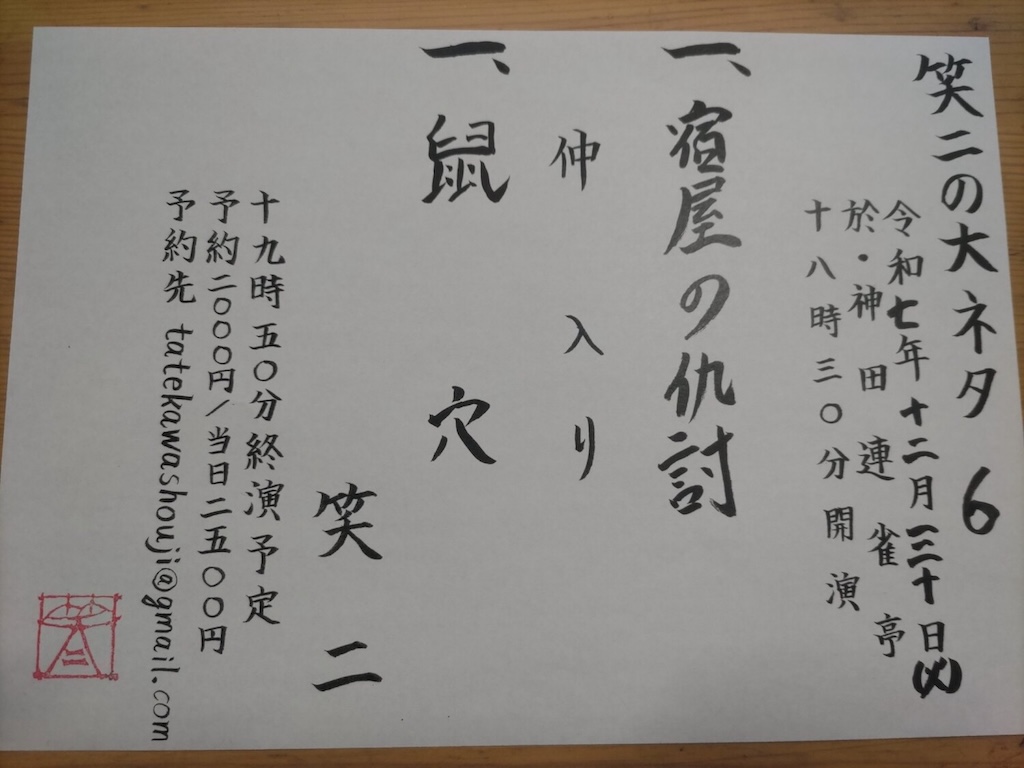 笑二の大ネタ 6
令和七年十二月三十日(火)
於・神田連雀亭
十八時三〇分開演
一、宿屋の仇討
仲入り
一、鼠穴
笑二
十九時五〇分終演予定
予約二〇〇〇円/当日二五〇〇円
予約先 tatekawashouji@gmail.com
笑二